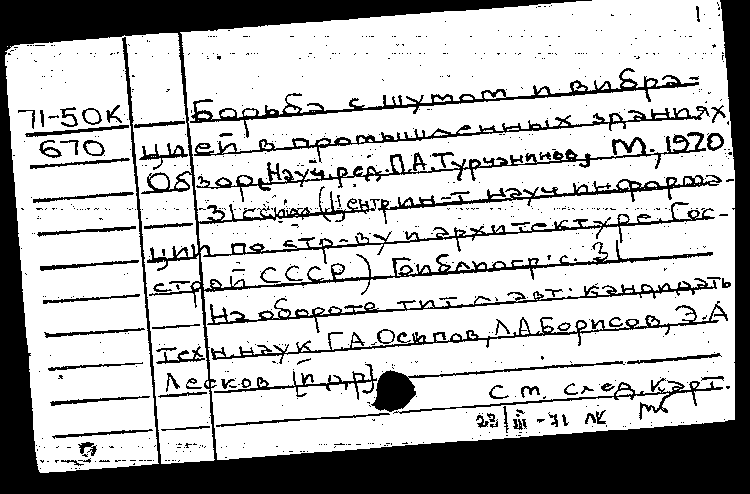 1
71-50К Борьба с шумом и вибра-
670 цией в промышленных зданиях
Обзор. Науч. ред. П.А. Турчанинов, М., 1970.
31 с. (Центр. ин-т науч информа-
ции по стр-ву и архитектуре. Гос-
строй СССР) Библиогр: с. 31
На обороте тит л. авт: кандидаты
техн. наук Г.А. Осипов, Л.А. Борисов, Э.А
Лесков [и др]
См. след. карт.
22/III-71 ЛК